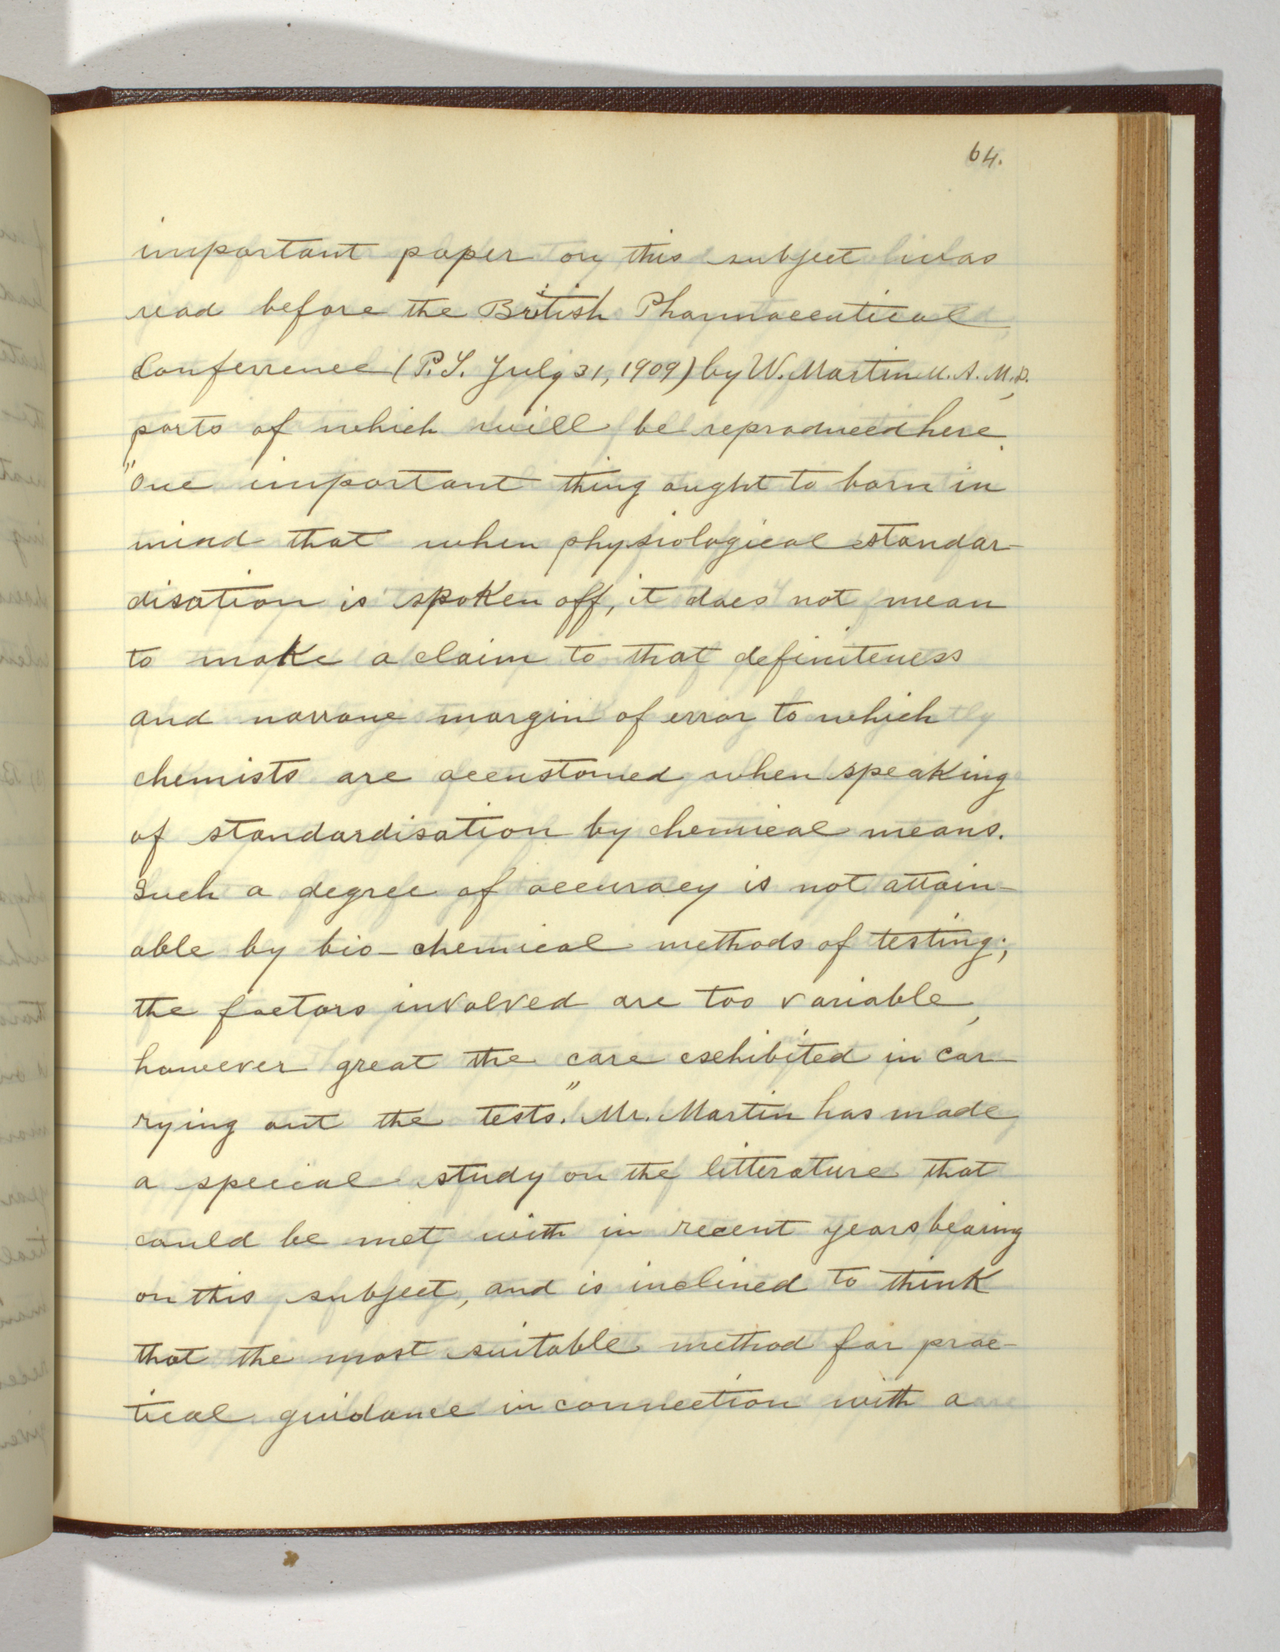 64.
important paper on this subject was
read before the British Pharmaceutical
Conference (P.J. July 31, 1909) by W. Martin M.A. M.D.,
parts of which will be reproduced here.
"One important thing ought to born in
mind that when physiological standar-
disation is spoken off, it does not mean
to make a claim to that definiteness
and narrow margin of error to which
chemists are accustomed when speaking
of standardisation by chemical means.
Such a degree of accuracy is not attain-
able by bio-chemical methods of testing;
the factors involved are too variable,
however great the care exhibited in car-
rying out the tests." Mr. Martin has made
a special study on the litterature that
could be met with in recent years bearing
on this subject, and is inclined to think
that the most suitable method for prac-
tical guidance in connection with a